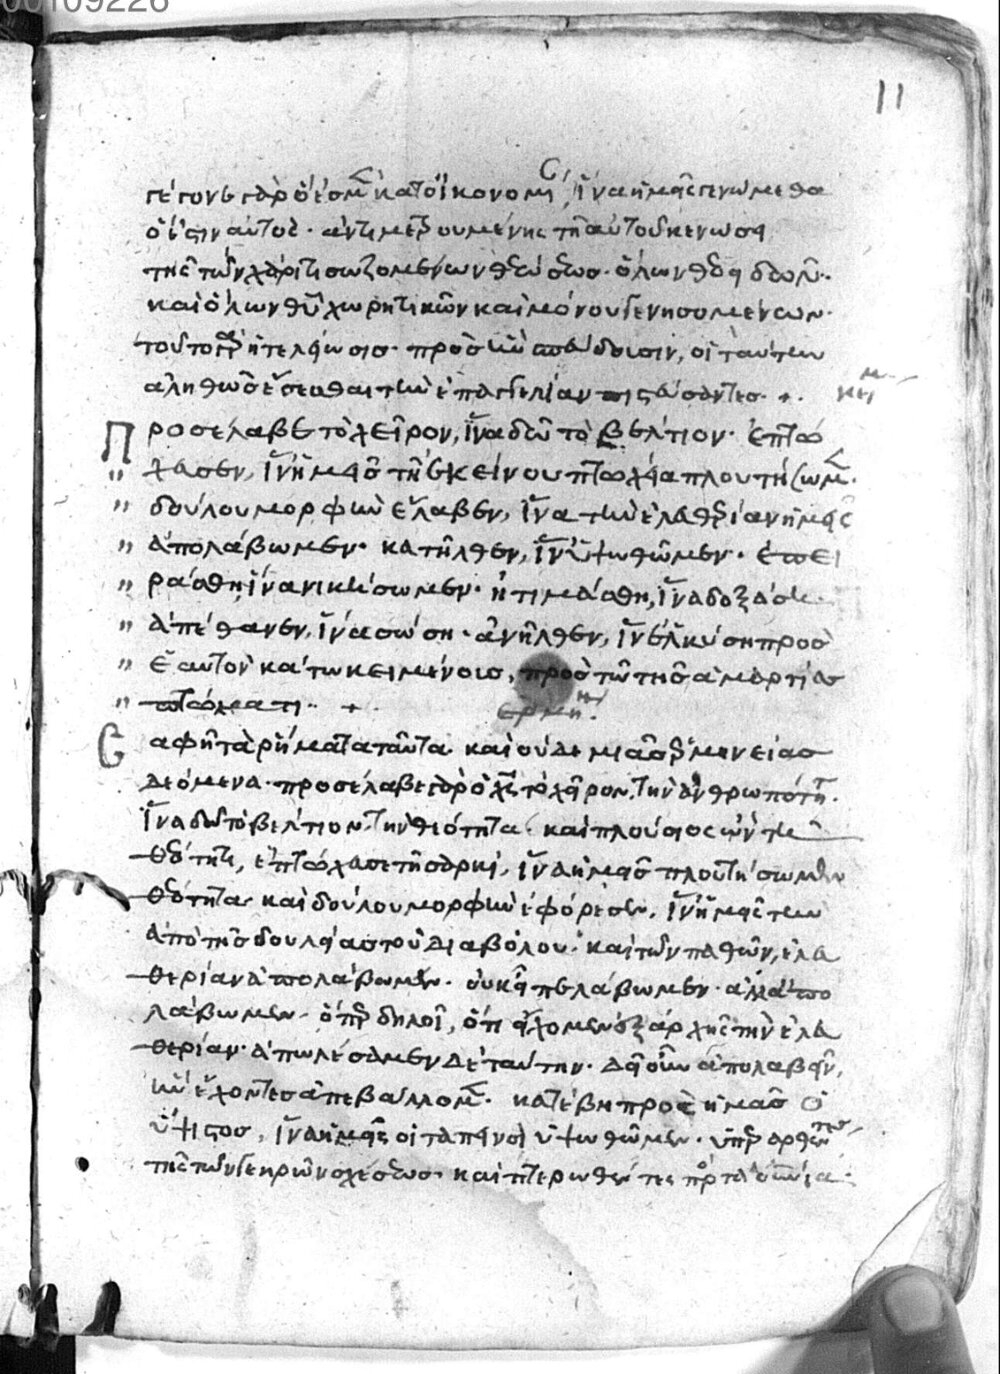 00109226
11
γέγονε γὰρ ὁ θεὸς κατ οἰκονομίαν, ἵνα ἡμεῖς γενώμεθα
ὅ ἐστιν αὐτός· ἀντιμετρουμένης τῇ αὐτοῦ κενώσει
τῆς τῶν χάριτι σωζομένων θεώσεως· ὅλων θεοειδῶν·
καὶ ὅλων θεοῦ χωρητικῶν καὶ μόνου γενησομένων·
τοῦτο γὰρ ἡ τελείωσις· πρὸς ἣν σπεύδουσιν, οἱ ταύτην
ἀληθῶς ἔσεσθαι τὴν ἐπαγγελίαν πιστεύσαντες· +·
κείμ
Προσέλαβε τὸ χεῖρον, ἵνα δῷ τὸ βέλτιον· ἐπτώ
χευσεν, ἵν ἡμεῖς τῇ ἐκείνου πτωχείᾳ πλουτήσωμεν·
δούλου μορφὴν ἔλαβεν, ἵνα τὴν ἐλευθερίαν ἡμεῖς
ἀπολάβωμεν· κατῆλθεν, ἵν ὑψωθῶμεν· ἐπει
ράσθη, ἵνα νικήσωμεν· ἠτιμάσθη, ἵνα δοξάσῃ·
ἀπέθανεν, ἵνα σώσῃ· ἀνῆλθεν, ἵν ἑλκύσῃ πρὸς
ἑαυτὸν κάτω κειμένους, πρὸς τῷ τῆς ἁμαρτίας
πτώματι· +
ἑρμη
Σαφῆ τὰ ῥήματα ταῦτα καὶ οὐδεμιᾶς ἑρμηνείας
δεόμενα· προσέλαβε γὰρ ὁ χς τὸ χεῖρον, τὴν ἀνθρωπότητα·
ἵνα δῷ τὸ βέλτιον, τὴν θεότητα· καὶ πλούσιος ὢν τῇ
θεότητι, ἐπτώχευσε τῇ σαρκί, ἵνα ἡμεῖς πλουτήσωμεν
θεότητα· καὶ δούλου μορφὴν ἐφόρεσεν, ἵν ἡμεῖς τὴν
ἀπὸ τῆς δουλείας τοῦ διαβόλου· καὶ τῶν παθῶν, ἐλευ
θερίαν ἀπολάβωμεν· οὐκ εἶπε λάβωμεν· ἀλλ ἀπο
λάβωμεν· ὅπερ δηλοῖ, ὅτι εἴχομεν ἐξ ἀρχῆς τὴν ἐλευ
θερίαν· ἀπωλέσαμεν δὲ ταύτην· δεῖ οὖν ἀπολαβεῖν,
ἣν ἔχοντες ἀπεβάλλομεν· κατέβη πρὸς ἡμᾶς ὁ
ὕψιστος, ἵνα ἡμεῖς οἱ ταπεινοὶ ὑψωθῶμεν· ὑπεραρθέντες
τῆς τῶν γεηρῶν σχέσεως· καὶ πτερωθέντες πρὸς τὰ οὐράνια·